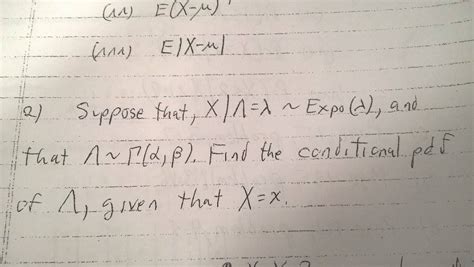 (ii) E(X-μ)'
(iii) E|X-μ|
2) Suppose that, X|Λ=λ ~ Expo(λ), and
that Λ ~ Γ(α,β). Find the conditional pdf
of Λ, given that X=x.